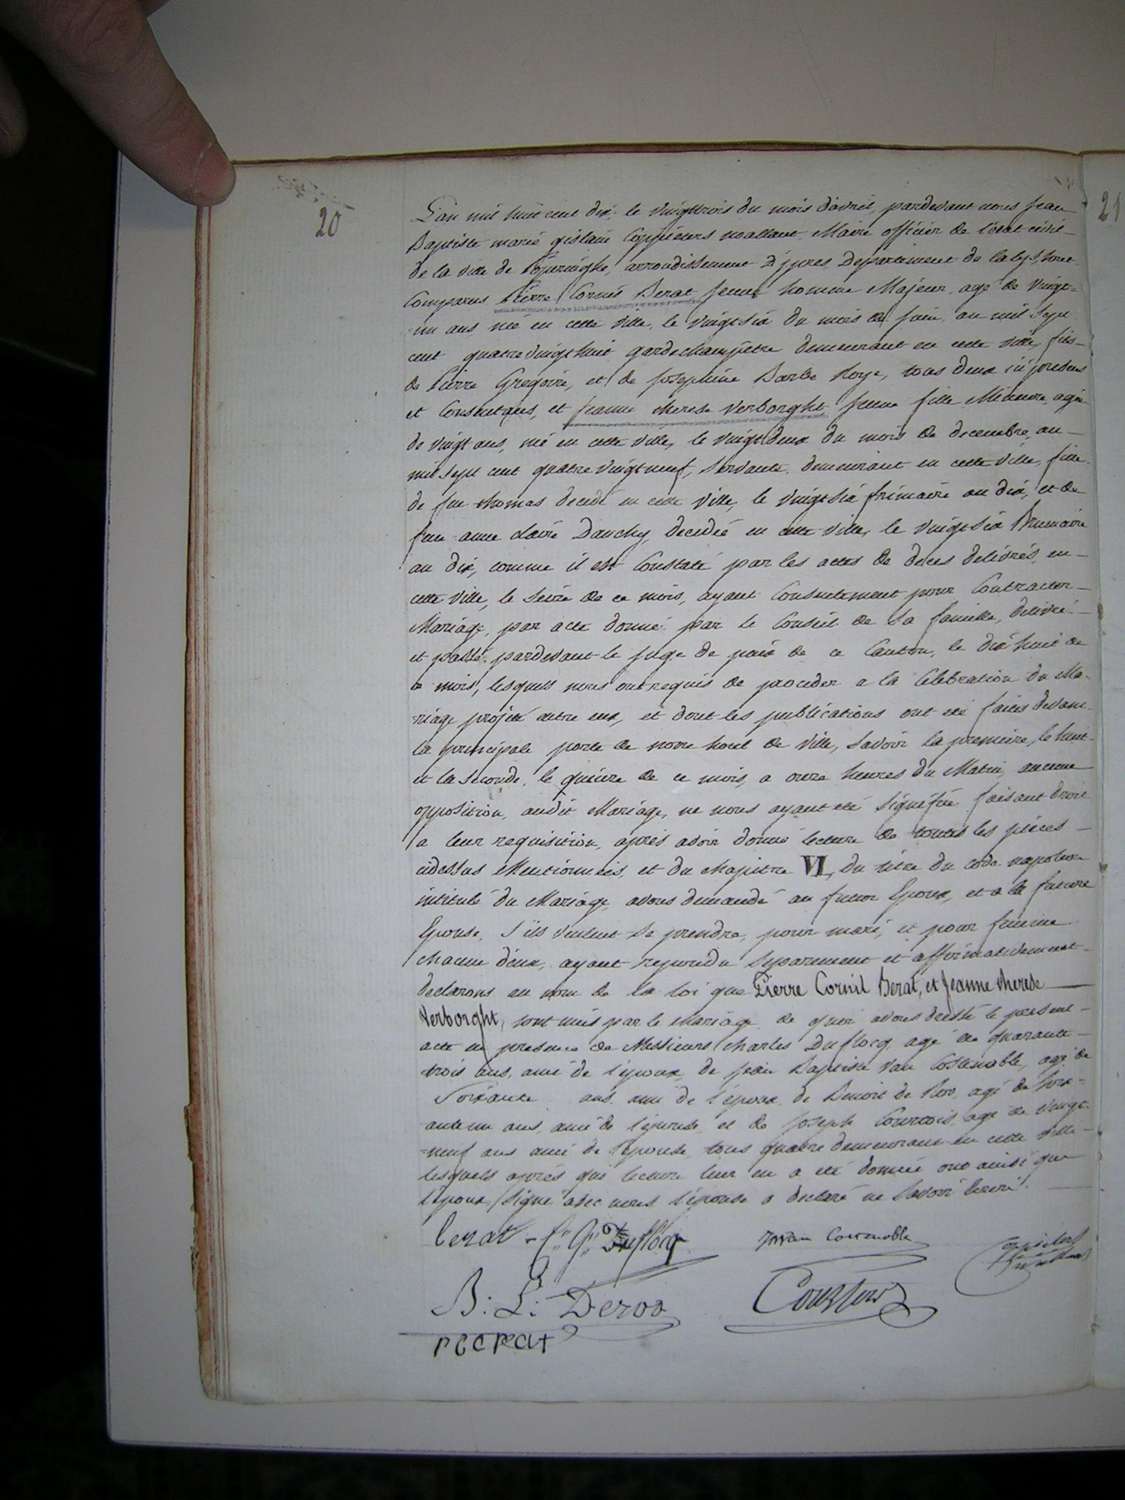 20
21
L'an mil huit cent dix, le vingttrois du mois d'avril, pardevant nous Jean
Baptiste marie gislain Coppieters wallant, Maire officier de l'état civil
de la ville de Poperinghe, arrondissement d'ypres Departement de la lys sont
Comparus Pierre Cornil Berat jeune homme Majeur, agé de vingt-
un ans né en cette ville, le vingtsix du mois de juin an mil sept
cent quatrevingthuit gardechampêtre demeurant en cette ville, fils
de Pierre Gregoire, et de Josephine Barbe Roye, tous deux ici presens
et Consentans, et Jeanne therese Verborght jeune fille Mineure, agée
de vingt ans, née en cette ville, le vingtdeux du mois de decembre, an
mil sept cent quatre vingt neuf, servante, demeurant en cette ville, fille
de feu thomas decedé en cette ville, le vingtsix frimaire an dix, et de
feue anne claire Dauchy, decedée en cette ville, le vingtsix Brumaire
an dix, comme il est Constaté par les actes de deces delivrés, en
cette ville, le seize de ce mois, ayant Consentement pour Contracter
Mariage, par acte donné par le Conseil de sa famille, delivré
et passé, pardevant le juge de paix de ce Canton, le dix huit de
ce mois, lesquels nous ont requis de proceder a la Celebration du Ma-
riage projetté entre eux, et dont les publications ont été faites devant
la principale porte de notre hotel de ville, savoir la premiere, le huit
et la seconde, le quinze de ce mois, a onze heures du Matin, aucune
opposition, audit Mariage, ne nous ayant été signifiée faisant droit
a leur requisition, après avoir donné lecture de toutes les pièces
cidessus Mentionnées et du chapitre VI, du titre du code napoleon
intitulé du Mariage, avons demandé au futur Epoux, et a la future
Epouse, s'ils veulent se prendre, pour mari, et pour femme
chacun d'eux, ayant repondu separement et affirmativement
declarons au nom de la loi que Pierre Cornil Berat, et Jeanne therese
Verborght, sont unis par le Mariage de quoi avons dressé le present
acte en presence de Messieurs Charles Duflocq agé de quarante
trois ans, ami de l'epoux, de jean Baptiste van Costenoble, agé de
Soixante ans, ami de l'époux, de Benoit de Roo, agé de soix-
ante un ans, ami de l'épouse, et de Joseph Courtois, agé de vingt
neuf ans ami de l'épouse, tous quatre demeurans en cette ville
lesquels après que lecture leur en a été donnée ont ainsi que
l'époux, signé avec nous l'épouse a declaré ne savoir Ecrire.
Berat
Duflocq
Costenoble
B: L: Deroo
Courtois